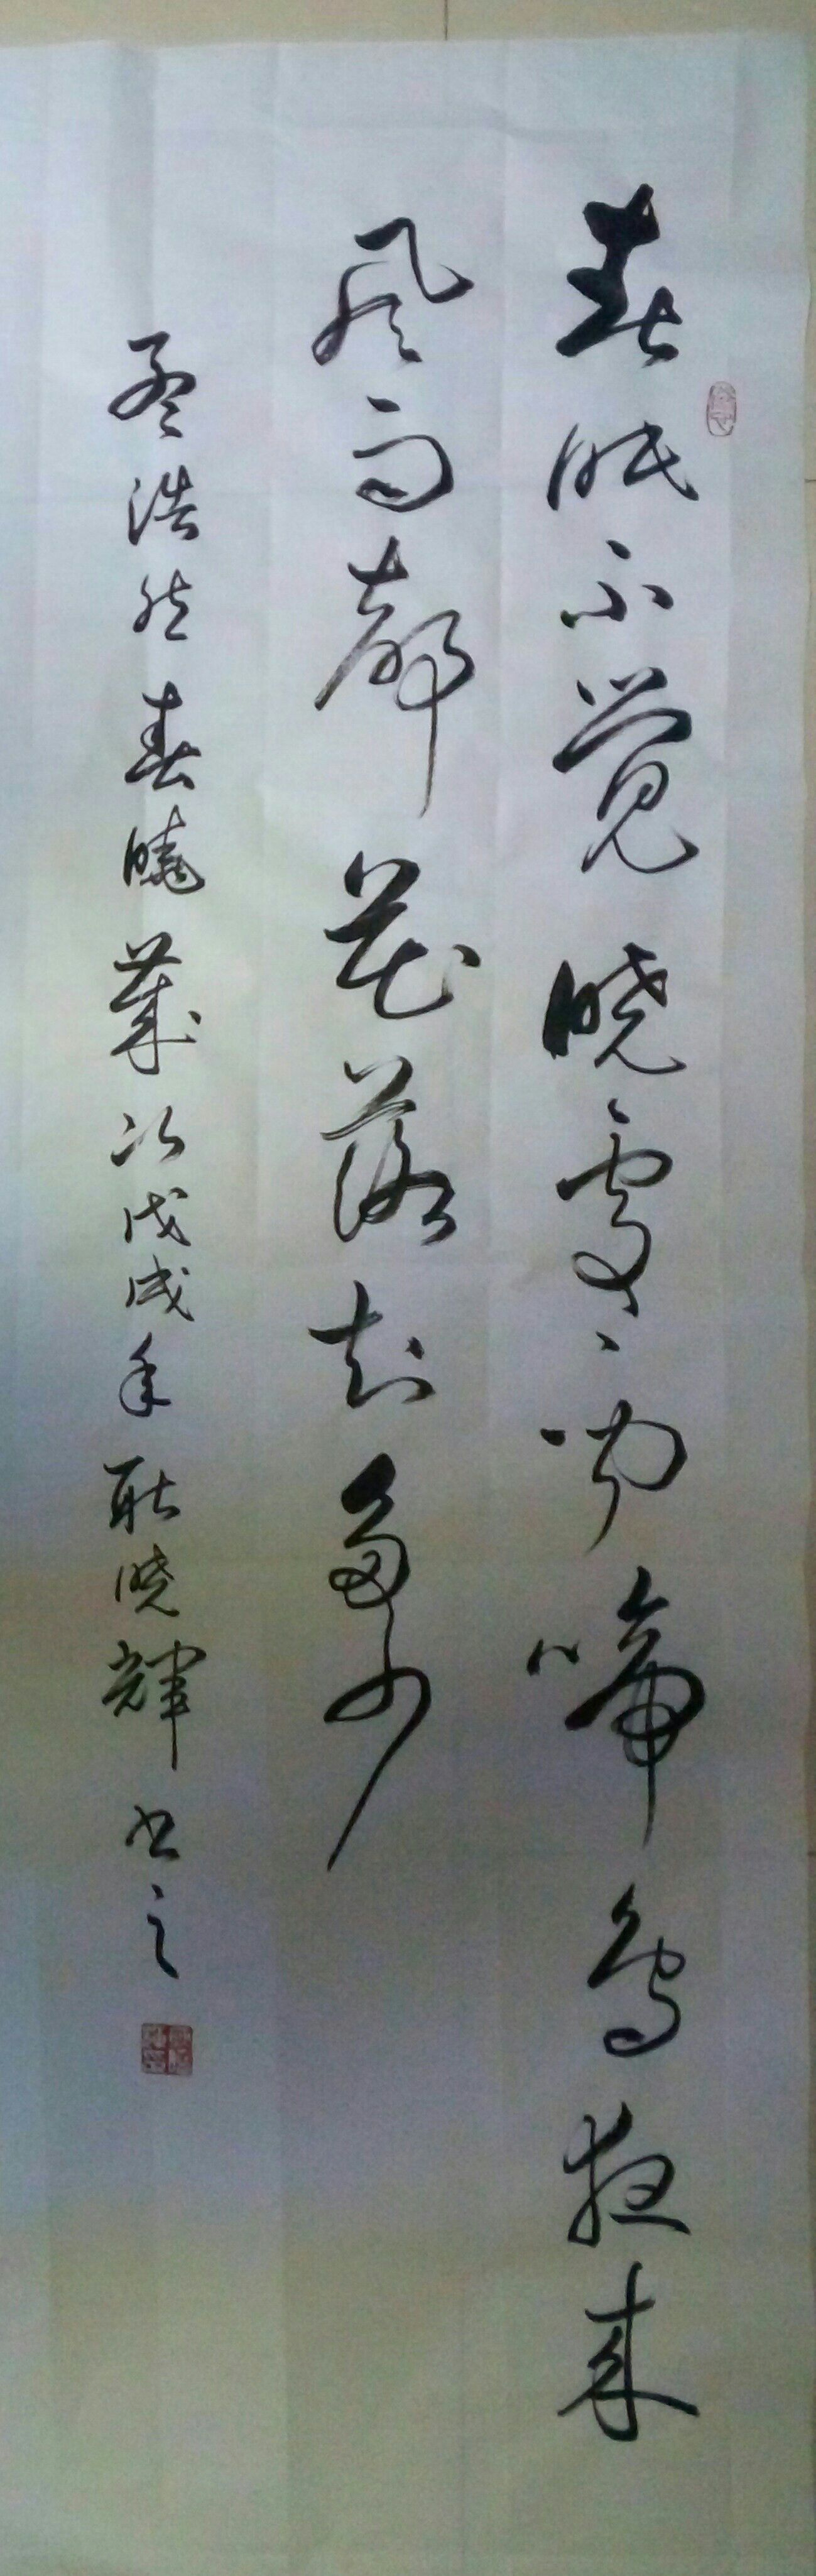 春眠不觉晓處々闻啼鸟夜来
风雨聲花落知多少
孟浩然春曉歲次戊戌年耿晓輝书之